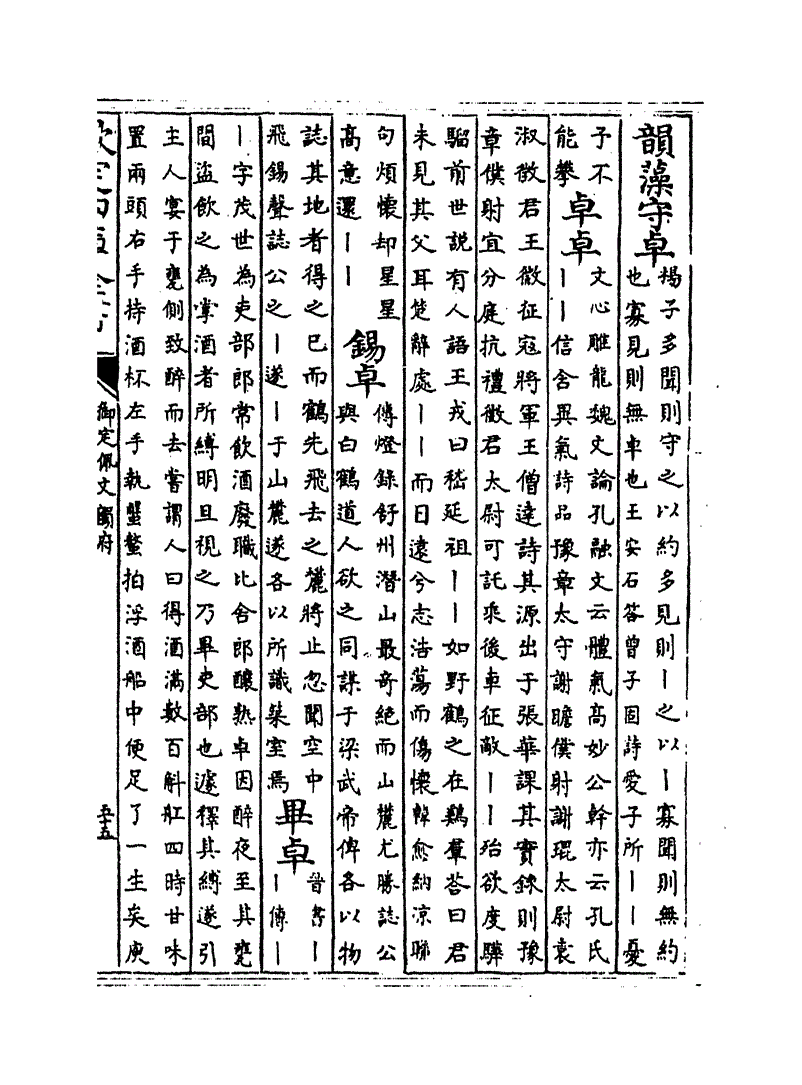 韻藻守卓
楊子多聞則守之以約多見則丨之以丨寡聞則無約
也寡見則無卓也王安石答曾子固詩愛子所丨丨憂
子不
能攀
卓卓
文心雕龍魏文論孔融文云體氣高妙公幹亦云孔氏
丨丨信含異氣詩品豫章太守謝瞻僕射謝琨太尉袁
淑徵君王微征寇將軍王僧達詩其源出于張華課其實錄則豫
章僕射宜分庭抗禮徵君太尉可託乘後車征敵丨丨殆欲度驊
騮前世說有人語王戎曰嵇延祖丨丨如野鶴之在鷄羣荅曰君
未見其父耳楚辭處丨丨而日遠兮志浩蕩而傷懷韓愈納凉聯
句煩懷却星星
高意還丨丨
錫卓
傳燈錄舒州潛山最奇絶而山麓尤勝誌公
與白鶴道人欲之同謀于梁武帝俾各以物
誌其地者得之已而鶴先飛去之麓將止忽聞空中
飛錫聲誌公之丨遂丨于山麓遂各以所識築室焉
畢卓
晉書丨
丨傳丨
丨字茂世為吏部郎常飲酒廢職比舍郎釀熟卓因醉夜至其甕
間盜飲之為掌酒者所縛明旦視之乃畢吏部也遽釋其縛遂引
主人宴于甕側致醉而去嘗謂人曰得酒滿數百斛舡四時甘味
置兩頭右手持酒杯左手執蟹螯拍浮酒船中便足了一生矣庾
欽定四庫全書
御定佩文韻府
五十五